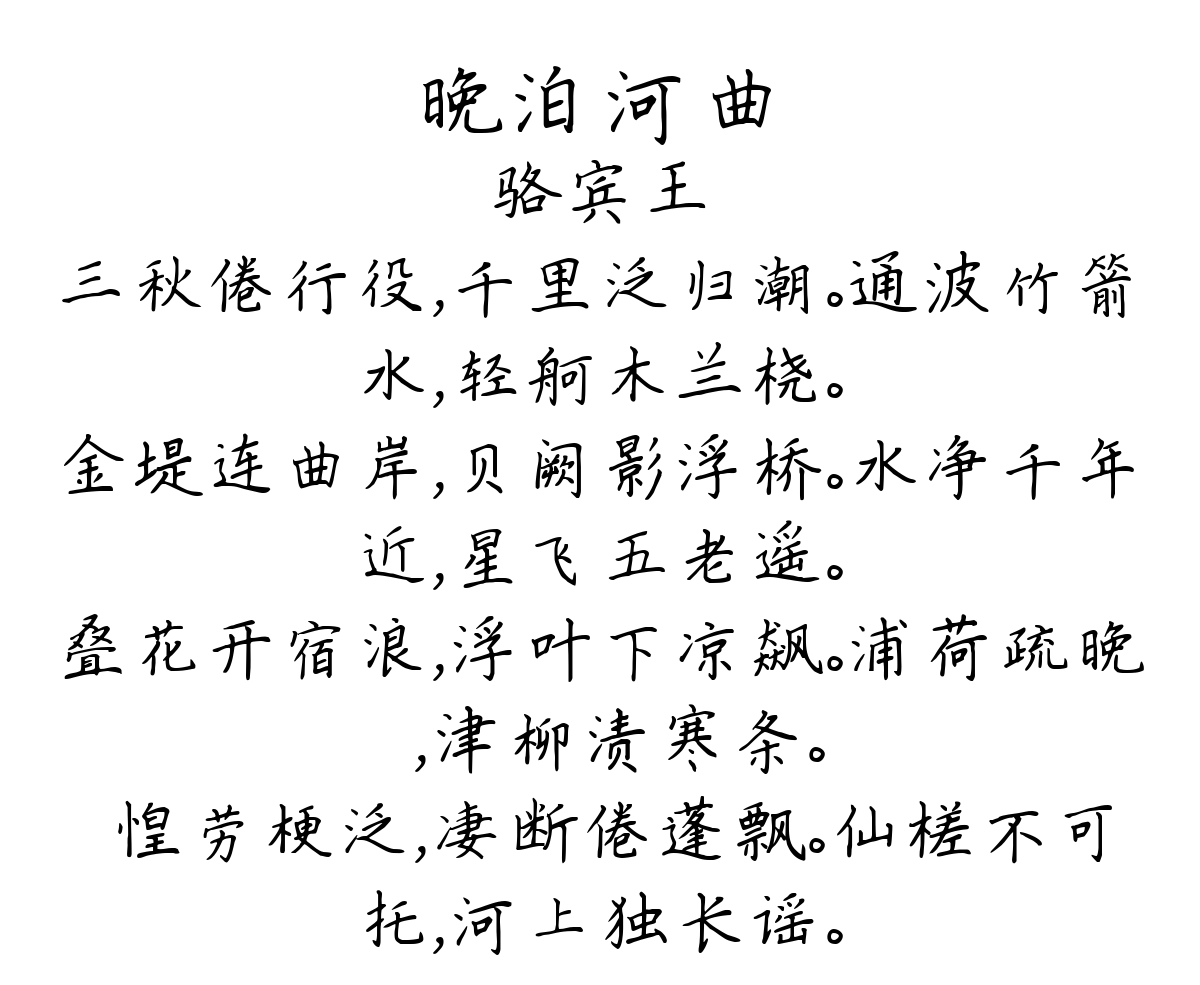 晚泊河曲
骆宾王
三秋倦行役,千里泛归潮。通波竹箭
水,轻舸木兰桡。
金堤连曲岸,贝阙影浮桥。水净千年
近,星飞五老遥。
叠花开宿浪,浮叶下凉飙。浦荷疏晚
,津柳渍寒条。
惶劳梗泛,凄断倦蓬飘。仙槎不可
托,河上独长谣。